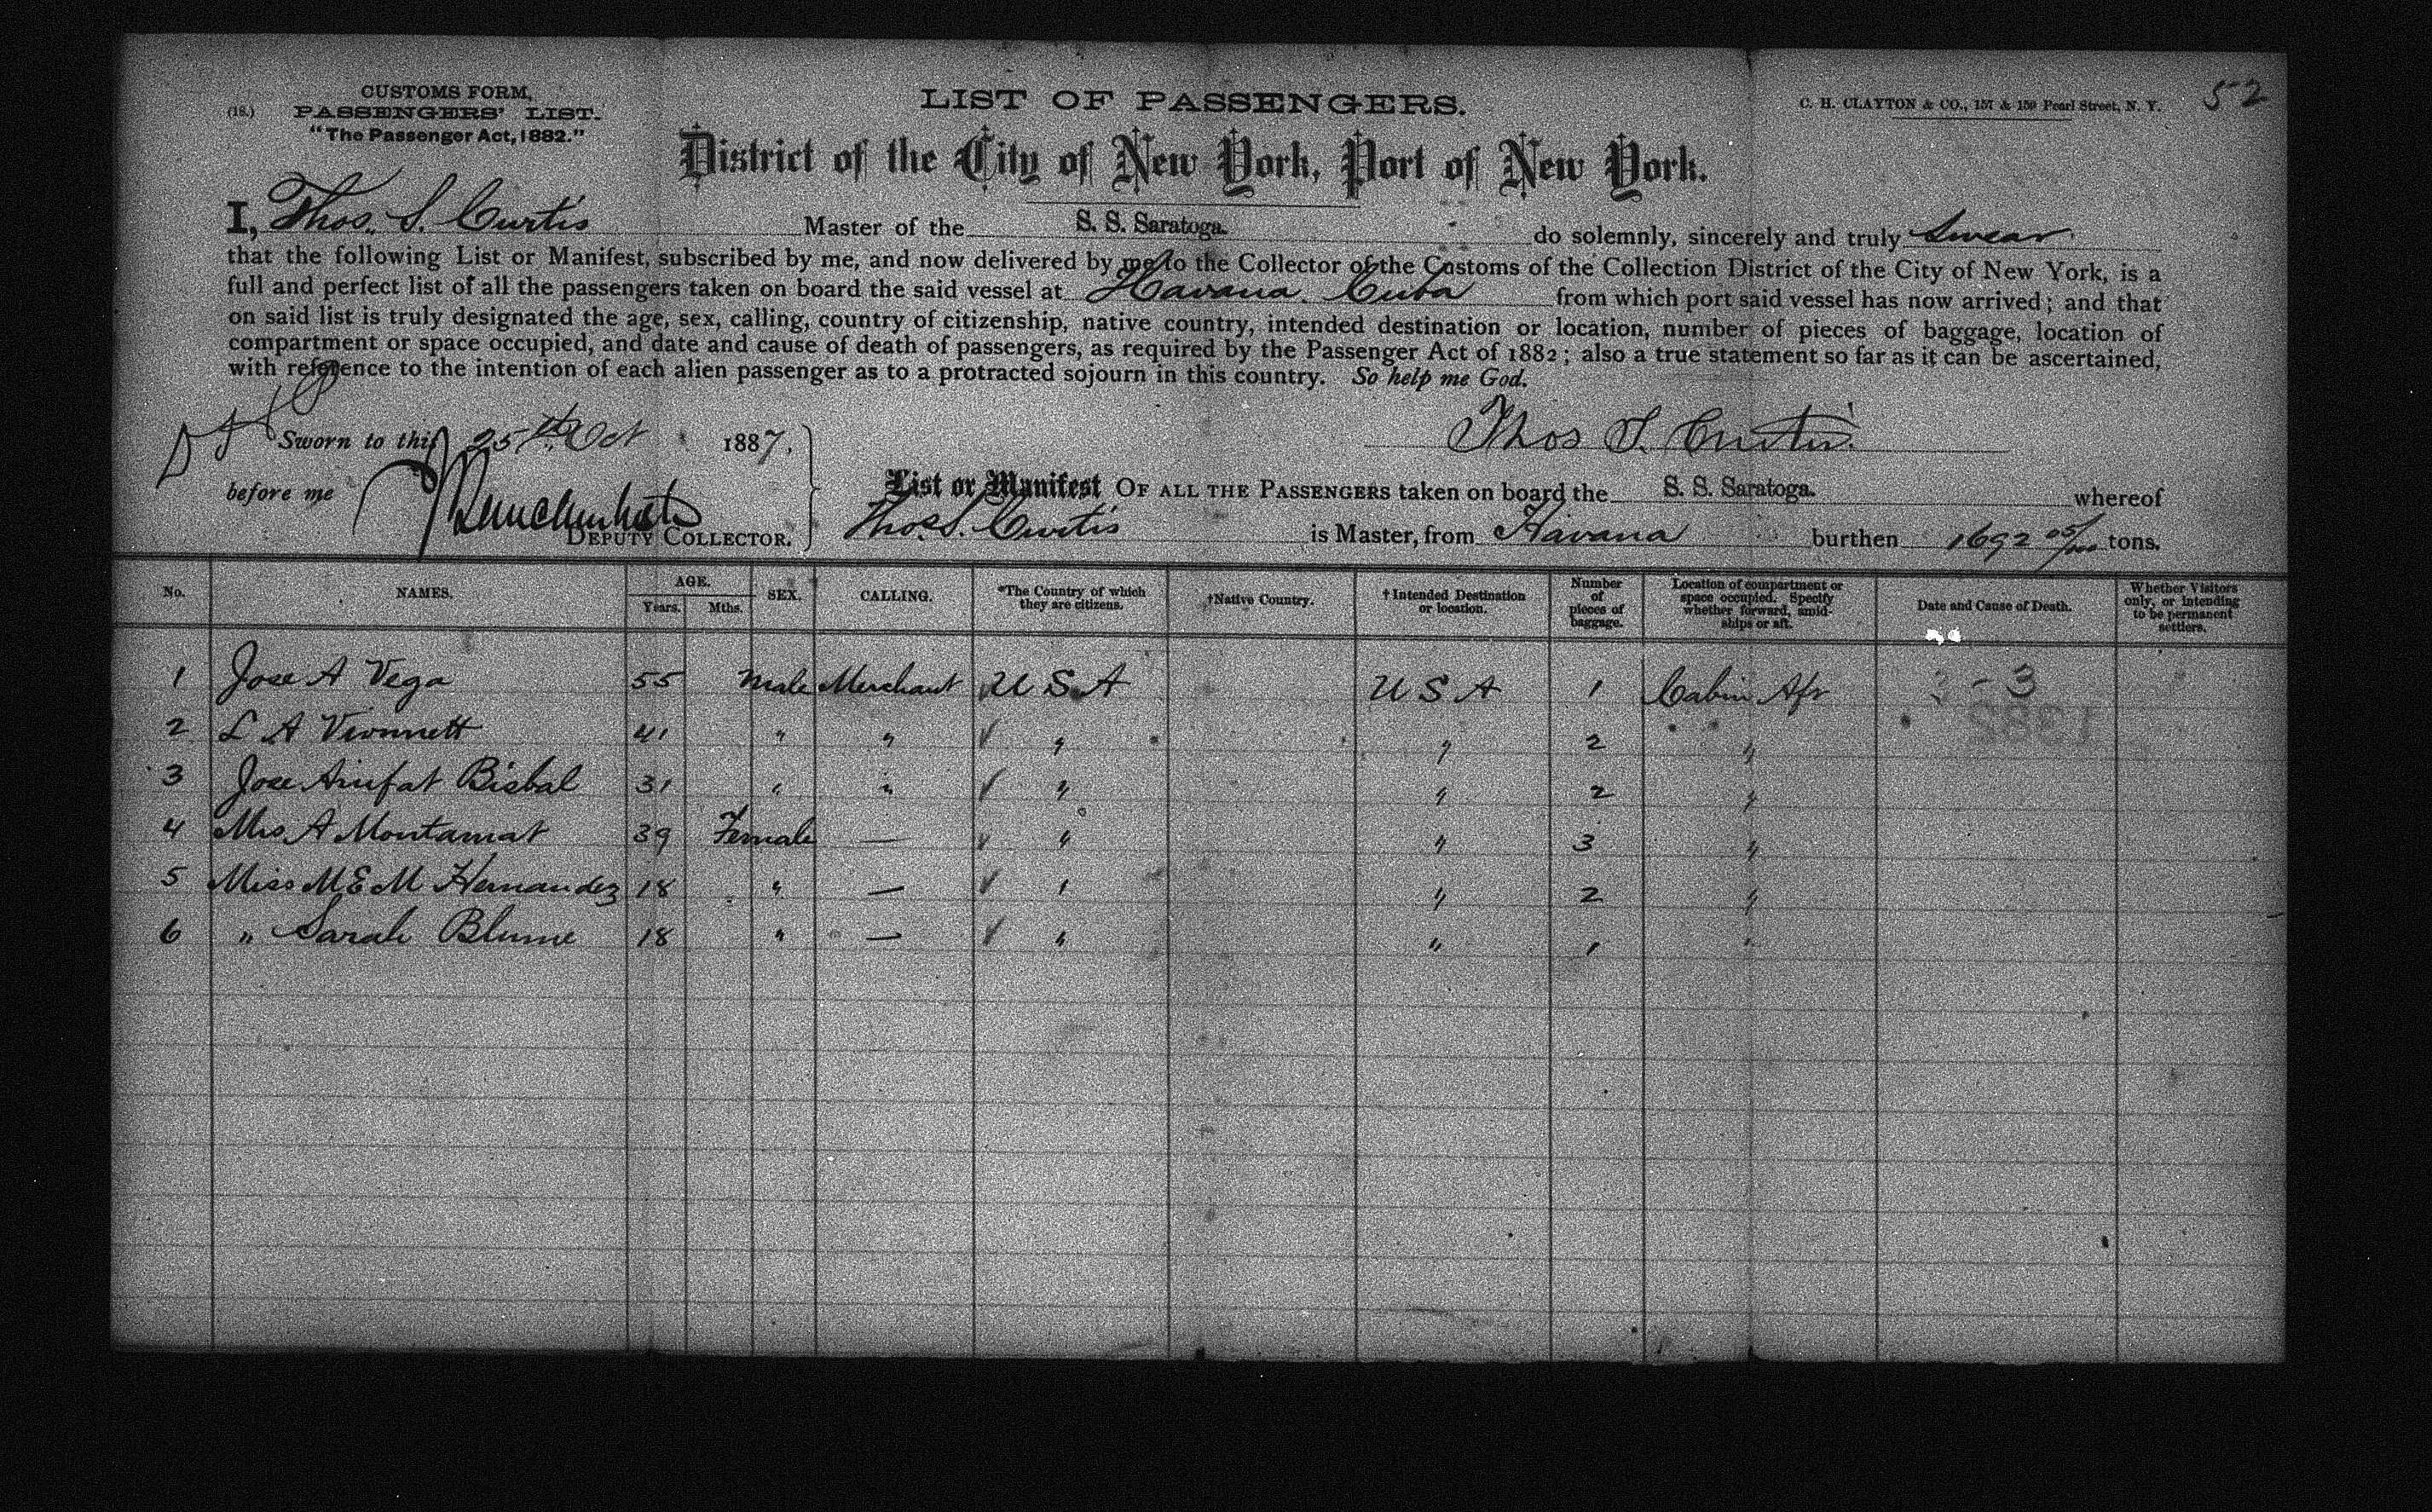 CUSTOMS FORM,
(18.) PASSENGERS' LIST.
"The Passenger Act, 1882."
LIST OF PASSENGERS.
C. H. CLAYTON & CO., 157 & 159 Pearl Street, N. Y.
52
District of the City of New York, Port of New York.
I, Thos. S. Curtis Master of the S. S. Saratoga. do solemnly, sincerely and truly swear
that the following List or Manifest, subscribed by me, and now delivered by me to the Collector of the Customs of the Collection District of the City of New York, is a
full and perfect list of all the passengers taken on board the said vessel at Havana. Cuba from which port said vessel has now arrived; and that
on said list is truly designated the age, sex, calling, country of citizenship, native country, intended destination or location, number of pieces of baggage, location of
compartment or space occupied, and date and cause of death of passengers, as required by the Passenger Act of 1882; also a true statement so far as it can be ascertained,
with reference to the intention of each alien passenger as to a protracted sojourn in this country. So help me God.
Sworn to this 25th Oct 1887, Thos S. Curtis
before me
DEPUTY COLLECTOR.
List or Manifest OF ALL THE PASSENGERS taken on board the S. S. Saratoga. whereof
Thos. S. Curtis is Master, from Havana burthen 1692 05/100 tons.
No. NAMES. AGE. Years. Mths. SEX. CALLING. *The Country of which they are citizens. †Native Country. †Intended Destination or location. Number of pieces of baggage. Location of compartment or space occupied. Specify whether forward, amidships or aft. Date and Cause of Death. Whether Visitors only, or intending to be permanent settlers.
1 Jose A Vega 55 Male Merchant U S A U S A 1 Cabin Aft 3
2 L A Vionnett 41 " " " " 2 "
3 Jose Arufat Bisbal 31 " " " " 2 "
4 Mrs A Montamat 39 Female — " " 3 "
5 Miss M E M Hernandez 18 " — " " 2 "
6 " Sarah Blume 18 " — " " 1 "